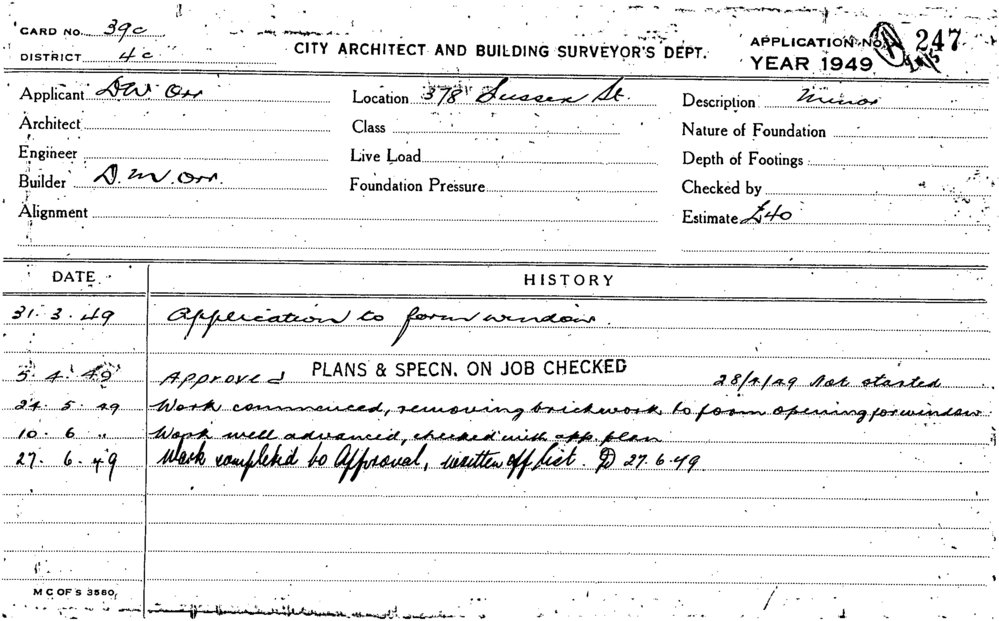 CARD NO. 39c
DISTRICT 4c
CITY ARCHITECT AND BUILDING SURVEYOR'S DEPT.
APPLICATION No. 247
YEAR 1949
Applicant D W Orr
Location 378 Sussex St.
Description Minor
Architect
Class
Nature of Foundation
Engineer
Live Load
Depth of Footings
Builder D. W. Orr.
Foundation Pressure
Checked by
Alignment
Estimate £40
DATE
HISTORY
31. 3. 49 Application to form window.
5. 4. 49 Approved PLANS & SPECN. ON JOB CHECKED 28/4/49 Not started
24. 5. 49 Work commenced, removing brickwork to form opening for window
10. 6 " Work well advanced, checked with app. plan
27. 6. 49 Work completed to Approval, written off list. 27.6.49.
M C OF S 3580